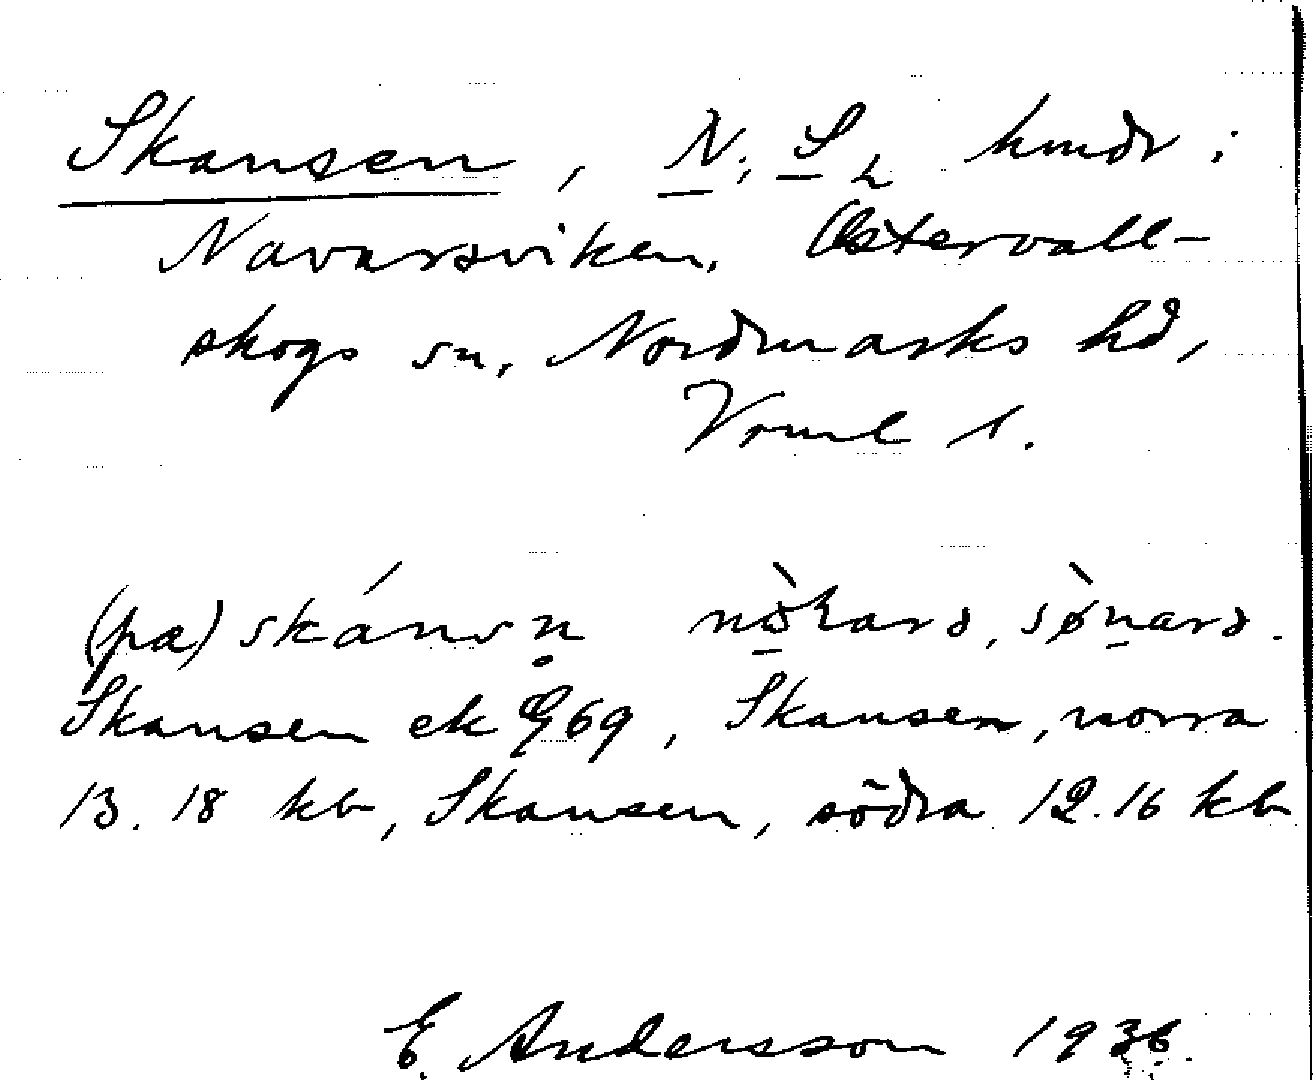 Skansen, N., S hmdr i
Navarsviken, Östervall-
skogs sn, Nordmarks hd,
Vrml l.
(pa) skánsn
Skansen ek G 69, Skansen, norra
13.18 kb, Skansen, södra 12.16 kb
E. Andersson 1936.